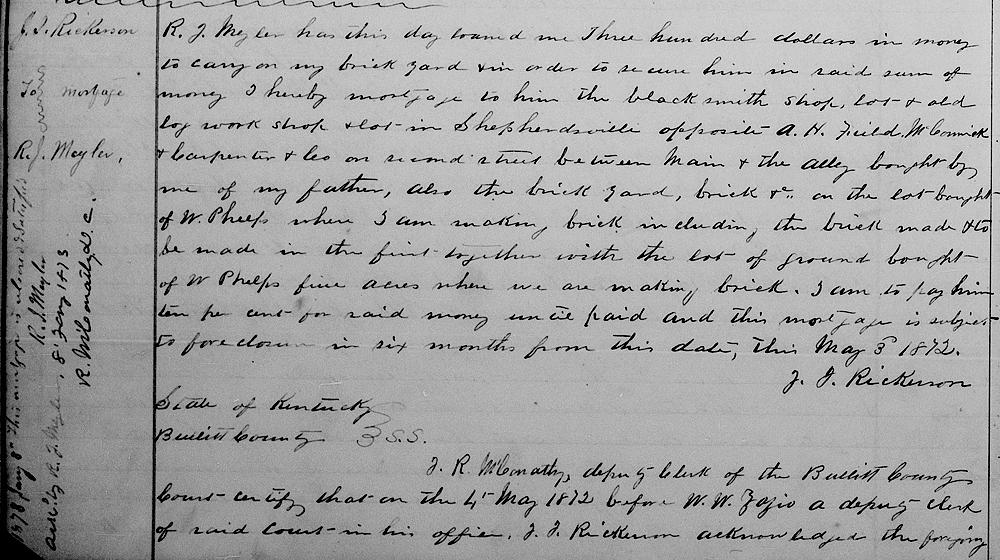 J. F. Rickerson
To mortgage
R. J. Meyler,
R. J. Meyler has this day loaned me Three hundred dollars in money
to carry on my brick yard & in order to secure him in said sum of
money I hereby mortgage to him the black smith shop, lot & old
log work shop & lot in Shepherdsville opposite A. H. Field, McCormick
& Carpenter & Co on second street between Main & the alley bought by
me of my father, also the brick yard, brick &c. on the lot bought
of W. Phelps where I am making brick including the brick made & to
be made in the together with the lot of ground bought
of W Phelps five acres where we are making brick. I am to pay him
ten per cent for said money until paid and this mortgage is subject
to foreclosure in six months from this date, this May 3 1872.
J. F. Rickerson
State of Kentucky
Bullitt County } S.S.
I. R. McConathy, deputy Clerk of the Bullitt County
Court certify that on the 4 May 1872 before W. W. a deputy clerk
of said court in his office, J. F. Rickerson acknowledged the foregoing
1873 Jany 8 This mortgage is released & satisfied
R. J. Meyler
Attest by R. J. Meyler, 8 Jany 1873
R. McConathy D. C.